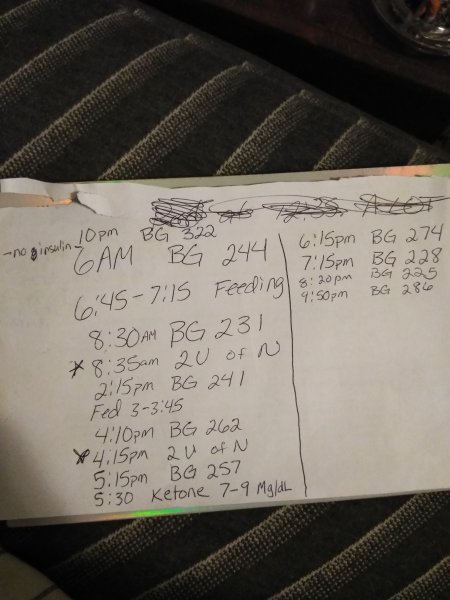 10pm BG 322
-no insulin-
6AM BG 244
6:45-7:15 Feeding
8:30AM BG 231
* 8:35am 2U of N
2:15pm BG 241
Fed 3-3:45
4:10pm BG 262
* 4:15pm 2U of N
5:15pm BG 257
5:30 Ketone 7-9 Mg/dL
6:15pm BG 274
7:15pm BG 228
8:20pm BG 225
9:50pm BG 286